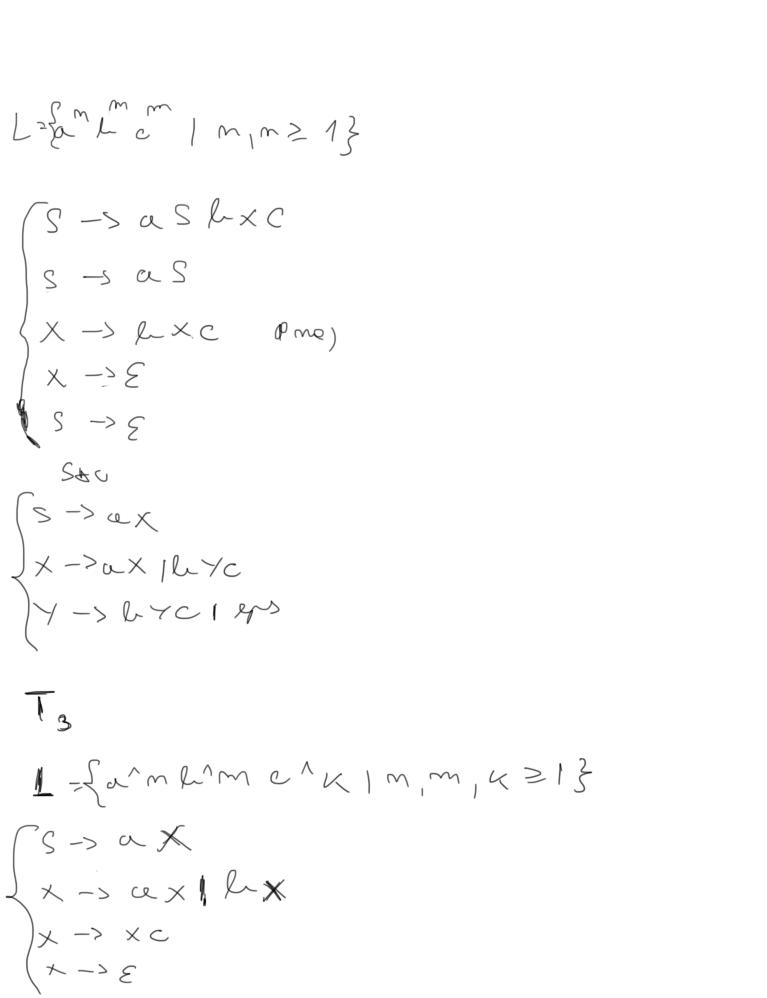 L={aⁿ bᵐ cᵐ | n,m ≥ 1}
S -> a S b X C
S -> a S
X -> b X C
X -> ε
S -> ε
S -> aX
X -> aX | bYC
Y -> bYC | eps
T3
L={a^n b^m c^k | n,m,k ≥ 1}
S -> a X
X -> aX | bX
X -> XC
X -> ε